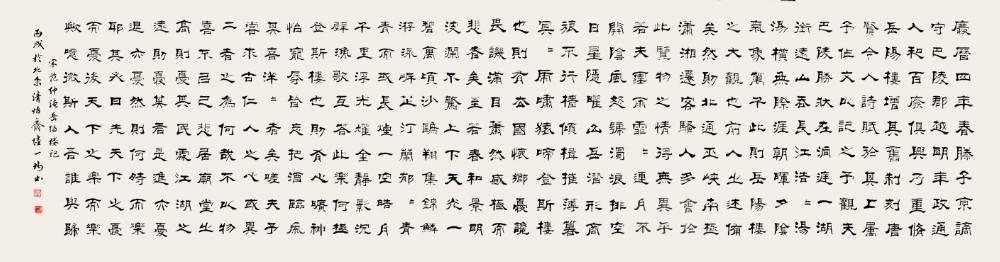 慶曆四年春滕子京謫
守巴陵郡越明年政通
人和百廢俱興乃重修
岳陽樓增其舊制刻唐
賢今人詩賦於其上屬
予作文以記之予觀夫
巴陵勝狀在洞庭一湖
銜遠山吞長江浩〻湯
湯橫無際涯朝暉夕陰
氣象萬千此則岳陽樓
之大觀也前人之述備
矣然則北通巫峽南極
瀟湘遷客騷人多會於
此覽物之情得無異乎
若夫霪雨霏〻連月不
開陰風怒號濁浪排空
日星隱曜山岳潛形商
旅不行檣傾楫摧薄暮
冥〻虎嘯猿啼登斯樓
也則有去國懷鄉憂讒
畏譏滿目蕭然感極而
悲者矣至若春和景明
波瀾不驚上下天光一
碧萬頃沙鷗翔集錦鱗
游泳岸芷汀蘭郁〻青
青而或長煙一空皓月
千里浮光耀金靜影沉
璧漁歌互答此樂何極
登斯樓也則有心曠神
怡寵辱皆忘把酒臨風
其喜洋〻者矣嗟夫予
嘗求古仁人之心或異
二者之為何哉不以物
喜不以己悲居廟堂之
高則憂其民處江湖之
遠則憂其君是進亦憂
退亦憂然則何時而樂
耶其必曰先天下之憂
而憂後天下之樂而樂
歟噫微斯人吾誰與歸
宋范仲淹岳陽樓記
丙戌於北京清怡齋